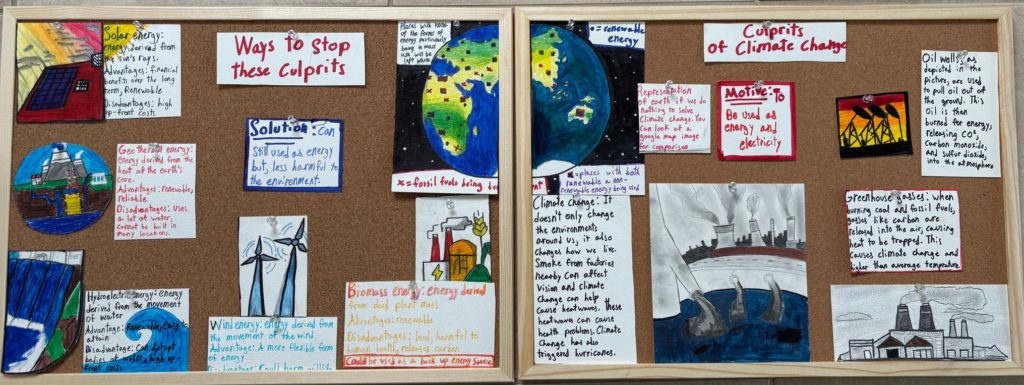 Solar energy:
energy derived from
the sun's rays.
Advantages: financial
benefits over the long
term, Renewable
Disadvantages: high
up-front costs
Ways to Stop
these Culprits
Solution: Can
Still used as energy
but, less harmful to
the environment.
Geothermal energy:
energy derived from the
heat of the earth's
core.
Advantages: renewable,
reliable
Disadvantages: uses
a lot of water,
cannot be built in
many locations.
Hydroelectric energy: energy
derived from the movement
of water
Advantage: Renewable, easy to
attain
Disadvantage: Can disrupt
bodies of water, high up-
front costs
Wind energy: energy derived from
the movement of the wind
Advantage: A more flexible form
of energy
Disadvantage: Could harm wildlife
Biomass energy: energy derived
from dead plant mass
Advantages: renewable
Disadvantages: loud, harmful to
human health, releases carbon
Could be used as a back up energy source
Places with none
of the forms of
energy particularly
being in mass
use, will be
left white
x = fossil fuels being
x = renewable
energy
= places with both
renewable & non-
renewable energy being used
Culprits
of Climate Change
Representation
of earth if we do
nothing to solve
Climate change. You
can look at a
google map image
for comparison
Motive: To
Be used as
energy and
electricity
Oil wells, as
depicted in the
picture, are used
to pull oil out of
the ground. This
Oil is then
burned for energy,
releasing CO²,
Carbon monoxide,
and sulfur dioxide,
into the atmosphere
Climate change: It
doesn't only change
the environments
around us, it also
changes how we live.
Smoke from factories
nearby can affect
Vision and climate
Change can help
cause heatwaves. These
heatwaves can cause
health problems. Climate
Change has also
triggered hurricanes.
Greenhouse gasses: when
burning coal and fossil fuels,
gasses like carbon are
released into the air, causing
heat to be trapped. This
causes climate change and
higher than average temperature